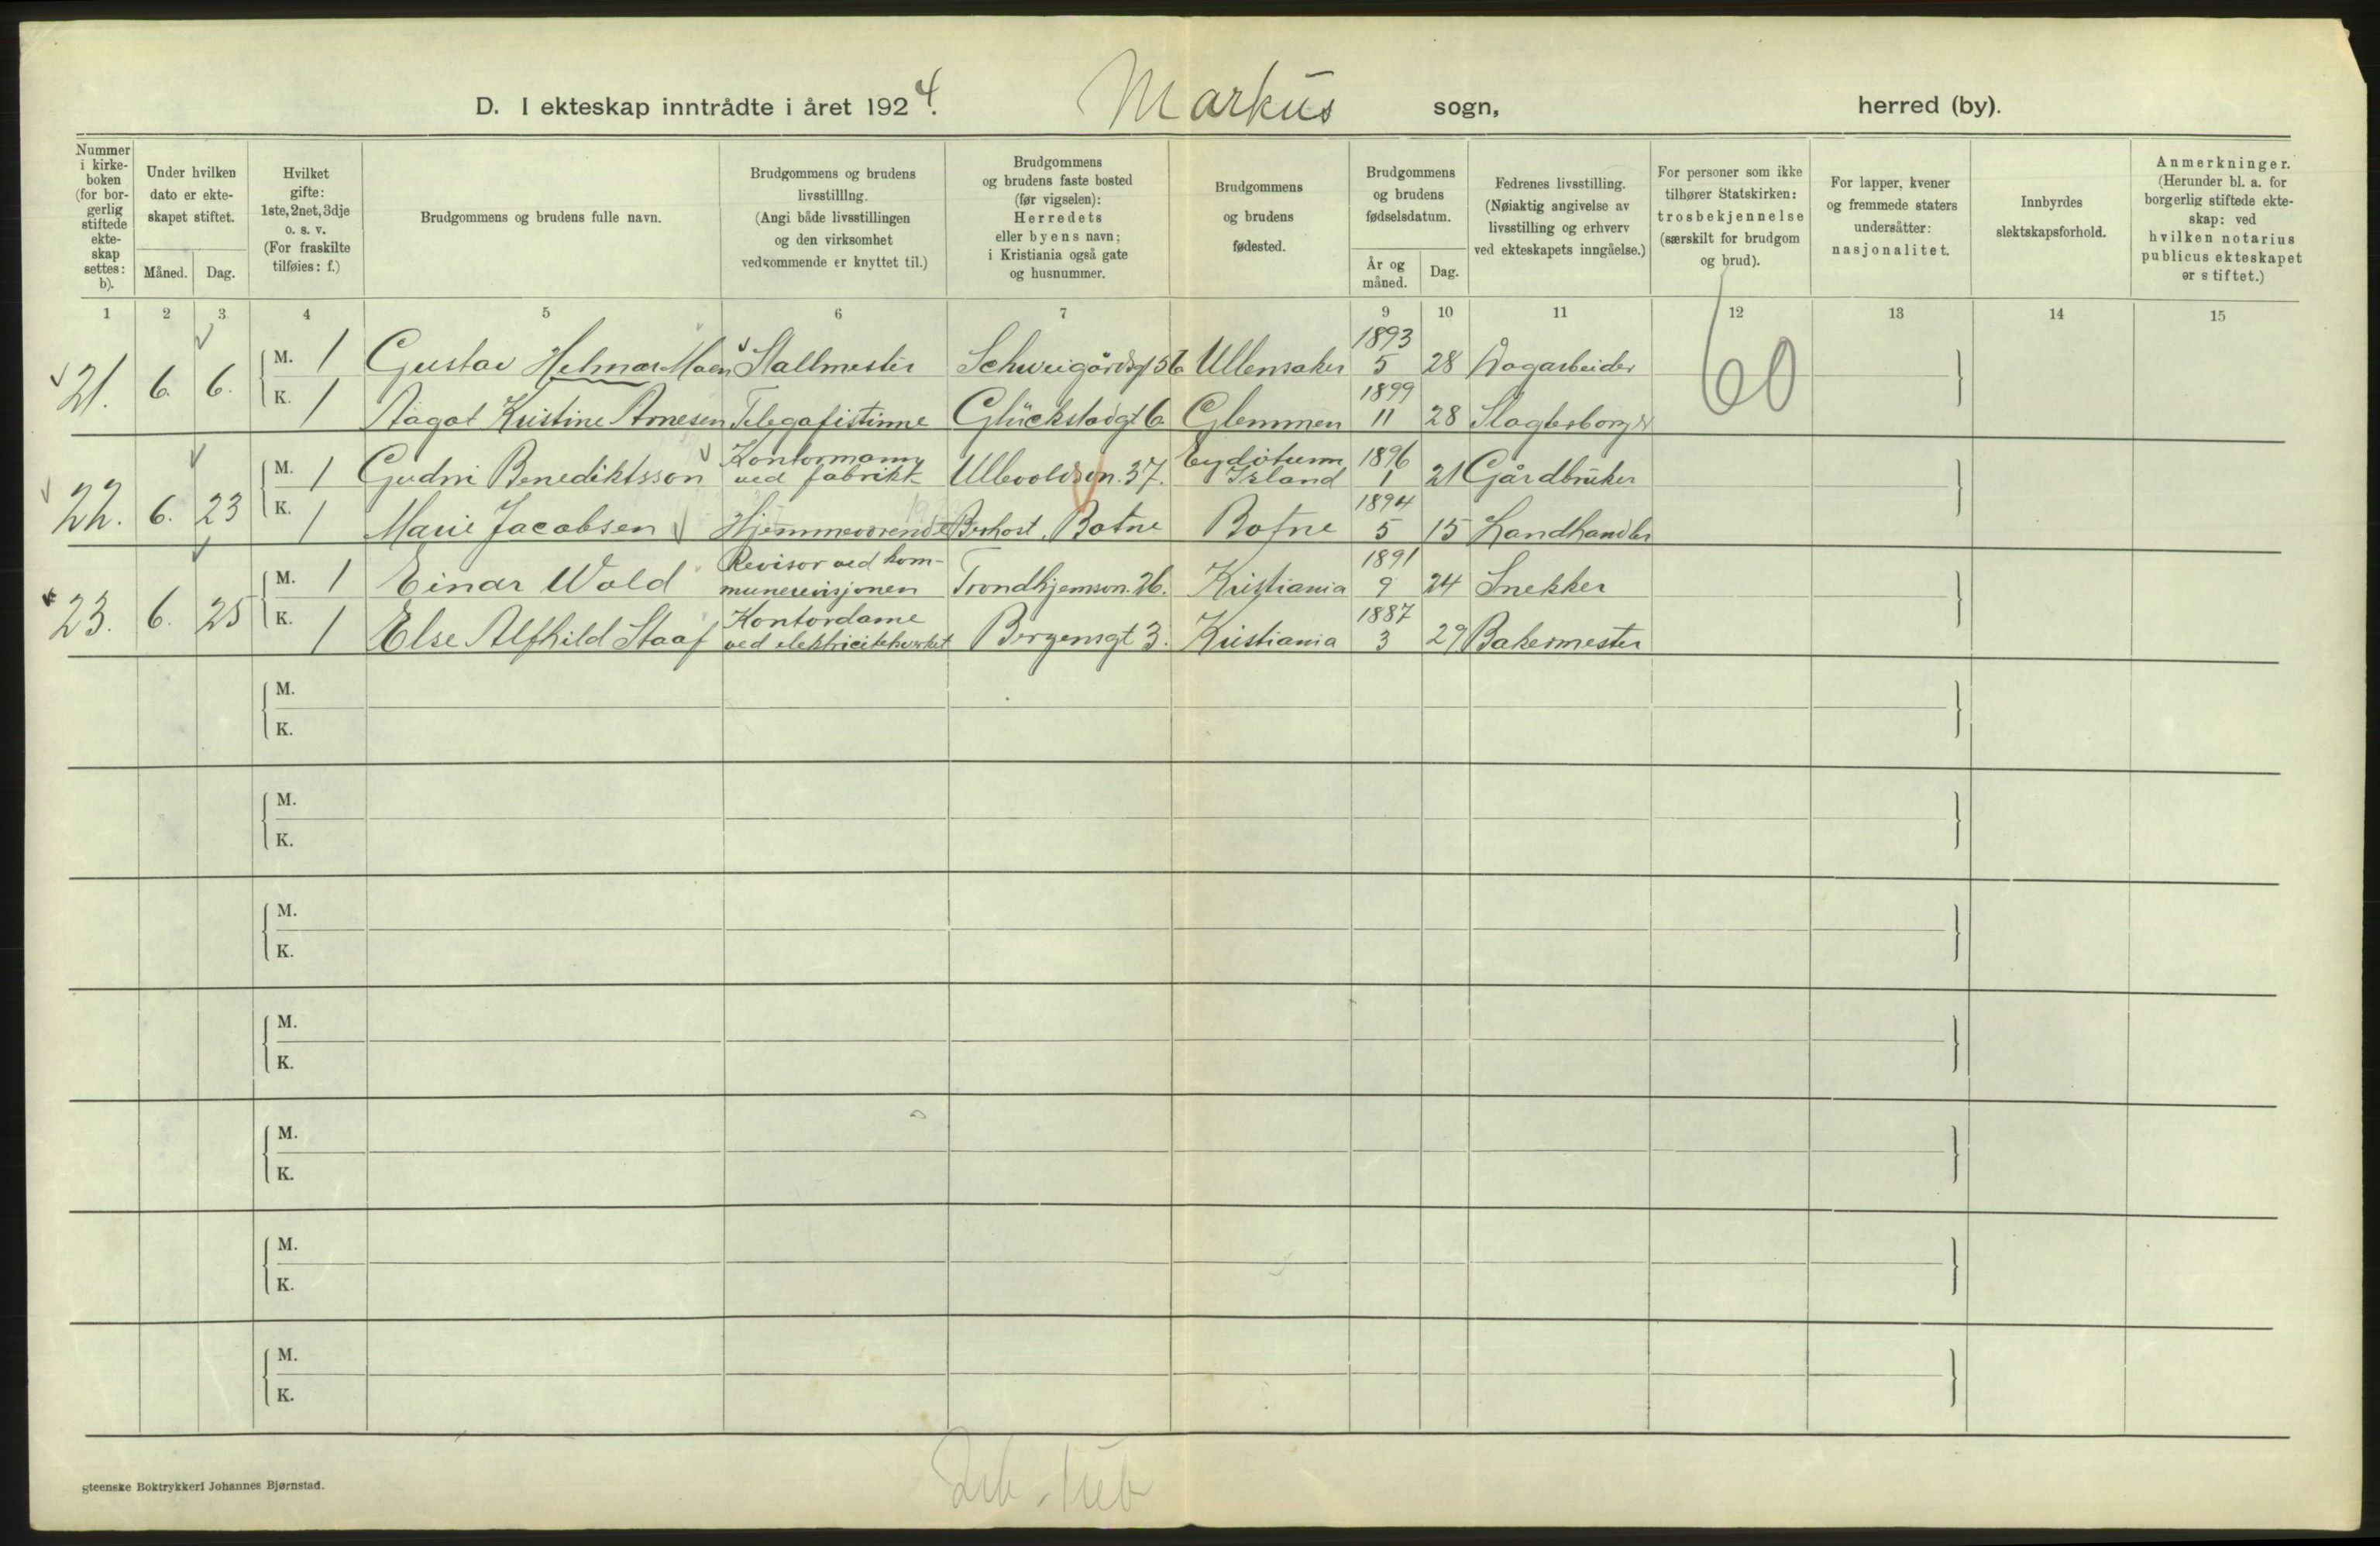 D. I ekteskap inntrådte i året 1924. Markus sogn, herred (by).
Nummer i kirke-boken (for bor-gerlig stiftede ekte-skap settes: b).
Under hvilken dato er ekte-skapet stiftet.
Måned. Dag.
Hvilket gifte: 1ste, 2net, 3dje o. s. v. (For fraskilte tilføies: f.)
Brudgommens og brudens fulle navn.
Brudgommens og brudens livsstilling. (Angi både livsstillingen og den virksomhet vedkommende er knyttet til.)
Brudgommens og brudens faste bosted (før vigselen): Herredets eller byens navn; i Kristiania også gate og husnummer.
Brudgommens og brudens fødested.
Brudgommens og brudens fødselsdatum.
År og måned. Dag.
Fedrenes livsstilling. (Nøiaktig angivelse av livsstilling og erhverv ved ekteskapets inngåelse.)
For personer som ikke tilhører Statskirken: trosbekjennelse (særskilt for brudgom og brud).
For lapper, kvener og fremmede staters undersåtter: nasjonalitet.
Innbyrdes slektskapsforhold.
Anmerkninger. (Herunder bl. a. for borgerlig stiftede ekte-skap: ved hvilken notarius publicus ekteskapet er stiftet.)
1 2 3 4 5 6 7 9 10 11 12 13 14 15
21. 6. 6. M. 1 Gustav Helmar Moen Stallmester Schweigårdsgt 56 Ullensaker 1893 5 28 Dagarbeider 60
K. 1 Aagot Kristine Arnesen Telegafistinne Glückstadgt 6 Glemmen 1899 11 28
22. 6. 23 M. 1 Gudni Benediktsson Kontormann ved fabrikk Ullevoldsvn. 37. Island 1896 1 21 Gårdbruker
K. 1 Marie Jacobsen Hjemmeværende Botne Botne 1894 5 15 Landhandler
23. 6. 25 M. 1 Einar Wold Revisor ved kom-munerevisjonen Trondhjemsvn. 26. Kristiania 1891 9 24 Snekker
K. 1 Else Alfhild Staaf Kontordame ved elektricitetsverket Bergensgt 3. Kristiania 1887 3 29 Bakermester
M.
K.
M.
K.
M.
K.
M.
K.
M.
K.
M.
K.
M.
K.
steenske Boktrykkeri Johannes Bjørnstad.